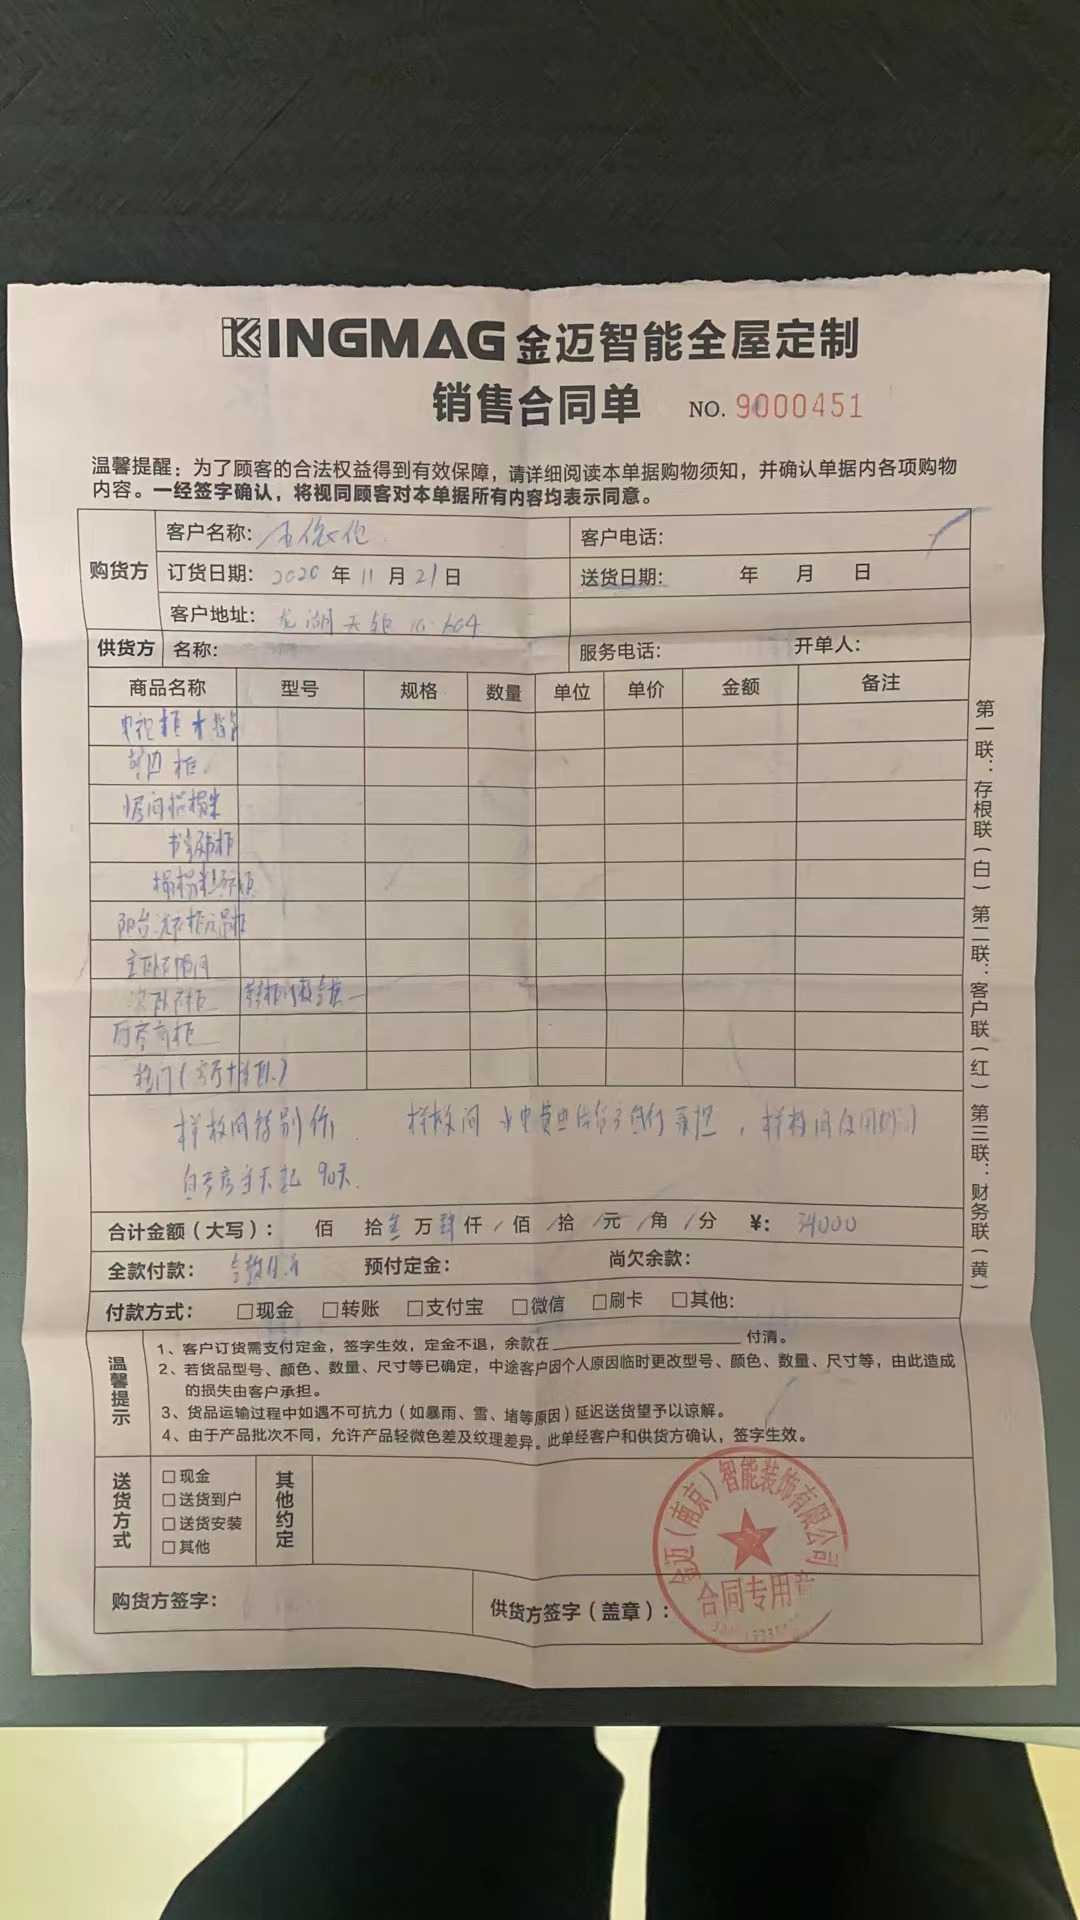 KINGMAG 金迈智能全屋定制
销售合同单 NO. 9000451
温馨提醒：为了顾客的合法权益得到有效保障，请详细阅读本单据购物须知，并确认单据内各项购物
内容。一经签字确认，将视同顾客对本单据所有内容均表示同意。
购货方
客户名称：
客户电话：
订货日期：2020 年 11 月 21 日
送货日期： 年 月 日
客户地址：龙湖天钜
供货方 名称： 服务电话： 开单人：
商品名称 型号 规格 数量 单位 单价 金额 备注
电视柜
柜
房间榻榻米
书柜
榻榻米
阳台
主卧
次卧衣柜
柜
移门
样板间特别价 样板间
90天
合计金额（大写）： 佰 拾叁万肆仟/佰/拾/元/角/分 ¥：34000
全款付款： 预付定金： 尚欠余款：
付款方式： □现金 □转账 □支付宝 □微信 □刷卡 □其他：
温馨提示
1、客户订货需支付定金，签字生效，定金不退，余款在 付清。
2、若货品型号、颜色、数量、尺寸等已确定，中途客户因个人原因临时更改型号、颜色、数量、尺寸等，由此造成
的损失由客户承担。
3、货品运输过程中如遇不可抗力（如暴雨、雪、堵等原因）延迟送货望予以谅解。
4、由于产品批次不同，允许产品轻微色差及纹理差异。此单经客户和供货方确认，签字生效。
送货方式
□现金
□送货到户
□送货安装
□其他
其他约定
购货方签字：
供货方签字（盖章）：
金迈（南京）智能装饰有限公司
合同专用章
第一联：存根联（白） 第二联：客户联（红） 第三联：财务联（黄）